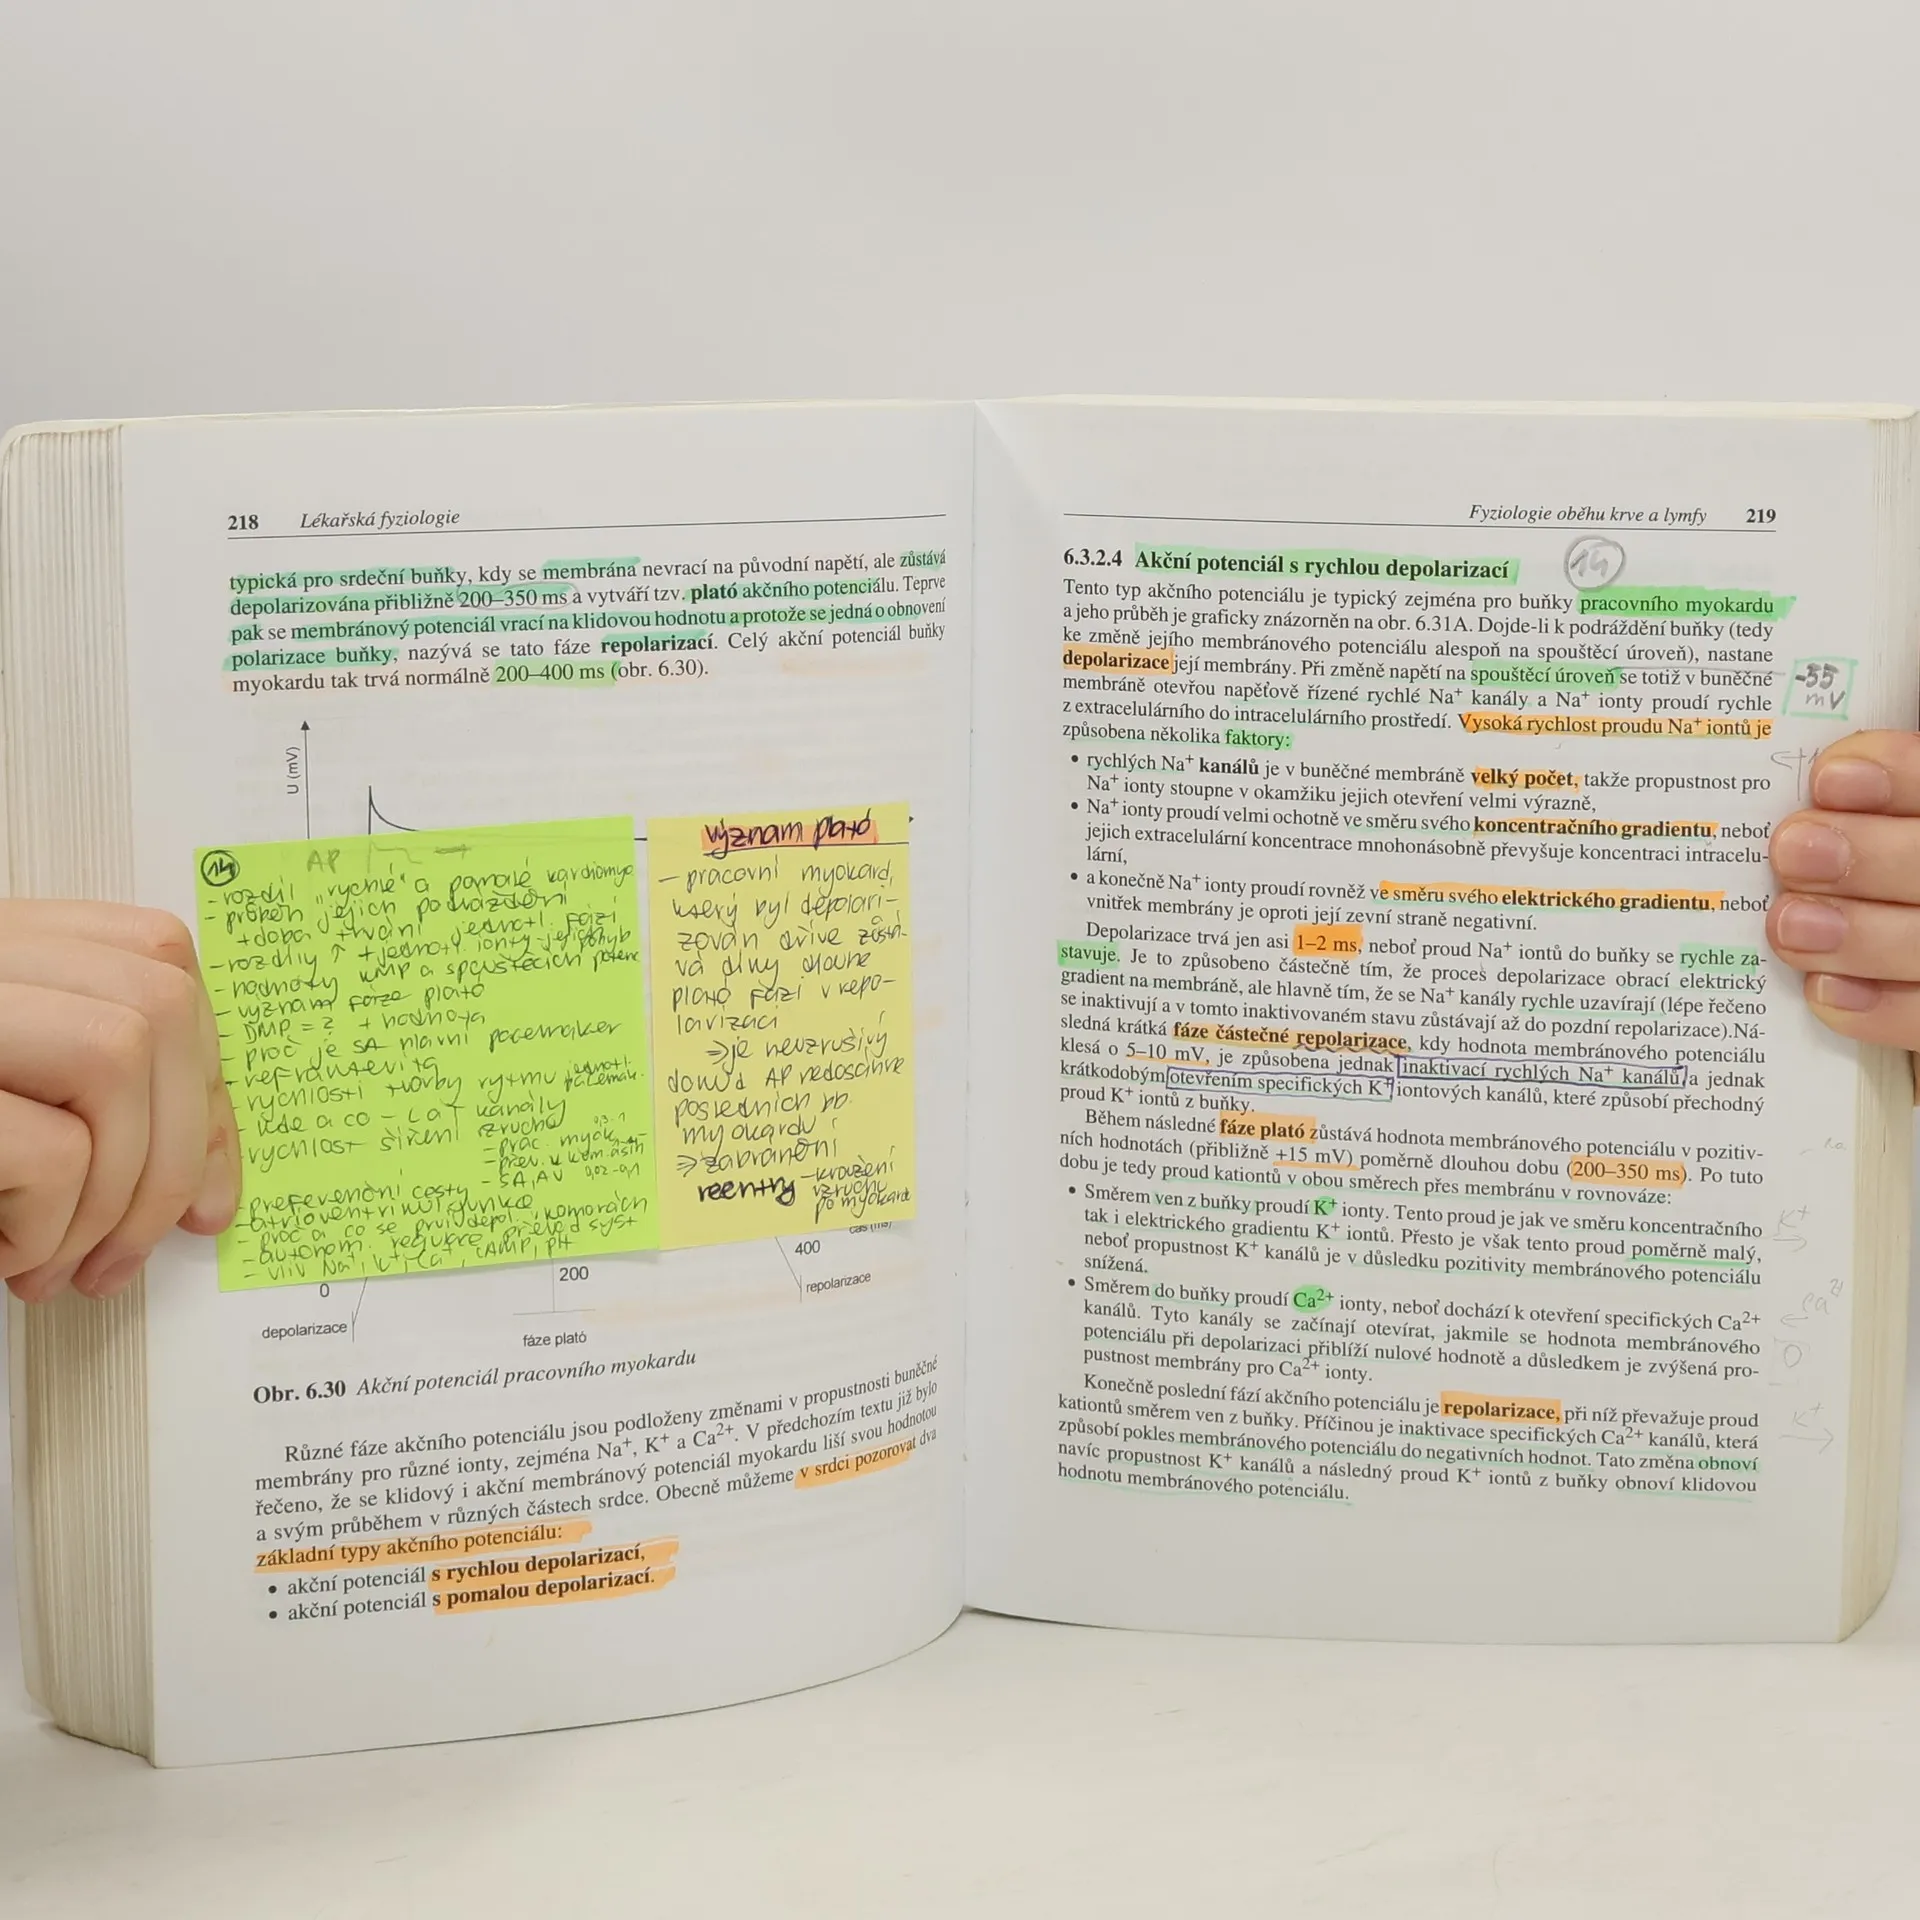 218 Lékařská fyziologie
typická pro srdeční buňky, kdy se membrána nevrací na původní napětí, ale zůstává
depolarizována přibližně 200–350 ms a vytváří tzv. plató akčního potenciálu. Teprve
pak se membránový potenciál vrací na klidovou hodnotu a protože se jedná o obnovení
polarizace buňky, nazývá se tato fáze repolarizací. Celý akční potenciál buňky
myokardu tak trvá normálně 200–400 ms (obr. 6.30).
U (mV)
14 AP
- rozdíl „rychlé" a pomalé kardiomyo
- průběh jejich podráždění
+ doba trvání jednotl. fází
- rozdíly ↑ + jednotl. ionty - jejich pohyb
- hodnoty KMP a spouštěcích potenc
- význam fáze plató
- DMP = ? + hodnota
- proč je SA hlavní pacemaker
- refrakterita
- rychlosti tvorby rytmu jednotl. pacemak.
- kde a co - Ca T kanály
- rychlost šíření vzruchu
- prac. myok. 0,3-1
- přev. k kom.
- SA, AV 0,02-0,1
- preferenční cesty
- atrioventrikul. junkce
- proč a co se prvně depol. v komorách
- autonom. regulace převod syst
- vliv Na⁺, K⁺, Ca⁺, cAMP, pH
význam plató
- pracovní myokard,
který byl depolari-
zován dříve zůstá-
vá díky dlouhé
plató fázi v repo-
larizaci
⇒ je nevzrušivý
dokud AP nedosáhne
posledních bb.
myokardu
⇒ zabránění
reentry - kroužení
vzruchu
po myokardu
čas (ms)
0
200
400
depolarizace
fáze plató
repolarizace
Obr. 6.30 Akční potenciál pracovního myokardu
Různé fáze akčního potenciálu jsou podloženy změnami v propustnosti buněčné
membrány pro různé ionty, zejména Na⁺, K⁺ a Ca²⁺. V předchozím textu již bylo
řečeno, že se klidový i akční membránový potenciál myokardu liší svou hodnotou
a svým průběhem v různých částech srdce. Obecně můžeme v srdci pozorovat dva
základní typy akčního potenciálu:
• akční potenciál s rychlou depolarizací,
• akční potenciál s pomalou depolarizací.
Fyziologie oběhu krve a lymfy 219
6.3.2.4 Akční potenciál s rychlou depolarizací 14
Tento typ akčního potenciálu je typický zejména pro buňky pracovního myokardu
a jeho průběh je graficky znázorněn na obr. 6.31A. Dojde-li k podráždění buňky (tedy
ke změně jejího membránového potenciálu alespoň na spouštěcí úroveň), nastane
depolarizace její membrány. Při změně napětí na spouštěcí úroveň se totiž v buněčné
membráně otevřou napěťově řízené rychlé Na⁺ kanály a Na⁺ ionty proudí rychle
z extracelulárního do intracelulárního prostředí. Vysoká rychlost proudu Na⁺ iontů je
způsobena několika faktory:
-55
mV
• rychlých Na⁺ kanálů je v buněčné membráně velký počet, takže propustnost pro
Na⁺ ionty stoupne v okamžiku jejich otevření velmi výrazně,
• Na⁺ ionty proudí velmi ochotně ve směru svého koncentračního gradientu, neboť
jejich extracelulární koncentrace mnohonásobně převyšuje koncentraci intracelu-
lární,
• a konečně Na⁺ ionty proudí rovněž ve směru svého elektrického gradientu, neboť
vnitřek membrány je oproti její zevní straně negativní.
Depolarizace trvá jen asi 1–2 ms, neboť proud Na⁺ iontů do buňky se rychle za-
stavuje. Je to způsobeno částečně tím, že proces depolarizace obrací elektrický
gradient na membráně, ale hlavně tím, že se Na⁺ kanály rychle uzavírají (lépe řečeno
se inaktivují a v tomto inaktivovaném stavu zůstávají až do pozdní repolarizace).Ná-
sledná krátká fáze částečné repolarizace, kdy hodnota membránového potenciálu
klesá o 5–10 mV, je způsobena jednak inaktivací rychlých Na⁺ kanálů, a jednak
krátkodobým otevřením specifických K⁺ iontových kanálů, které způsobí přechodný
proud K⁺ iontů z buňky.
Během následné fáze plató zůstává hodnota membránového potenciálu v pozitiv-
ních hodnotách (přibližně +15 mV) poměrně dlouhou dobu (200–350 ms). Po tuto
dobu je tedy proud kationtů v obou směrech přes membránu v rovnováze:
• Směrem ven z buňky proudí K⁺ ionty. Tento proud je jak ve směru koncentračního
tak i elektrického gradientu K⁺ iontů. Přesto je však tento proud poměrně malý,
neboť propustnost K⁺ kanálů je v důsledku pozitivity membránového potenciálu
snížená.
K⁺
• Směrem do buňky proudí Ca²⁺ ionty, neboť dochází k otevření specifických Ca²⁺
kanálů. Tyto kanály se začínají otevírat, jakmile se hodnota membránového
potenciálu při depolarizaci přiblíží nulové hodnotě a důsledkem je zvýšená pro-
pustnost membrány pro Ca²⁺ ionty.
Ca²⁺
0
Konečně poslední fází akčního potenciálu je repolarizace, při níž převažuje proud
kationtů směrem ven z buňky. Příčinou je inaktivace specifických Ca²⁺ kanálů, která
způsobí pokles membránového potenciálu do negativních hodnot. Tato změna obnoví
navíc propustnost K⁺ kanálů a následný proud K⁺ iontů z buňky obnoví klidovou
hodnotu membránového potenciálu.
K⁺